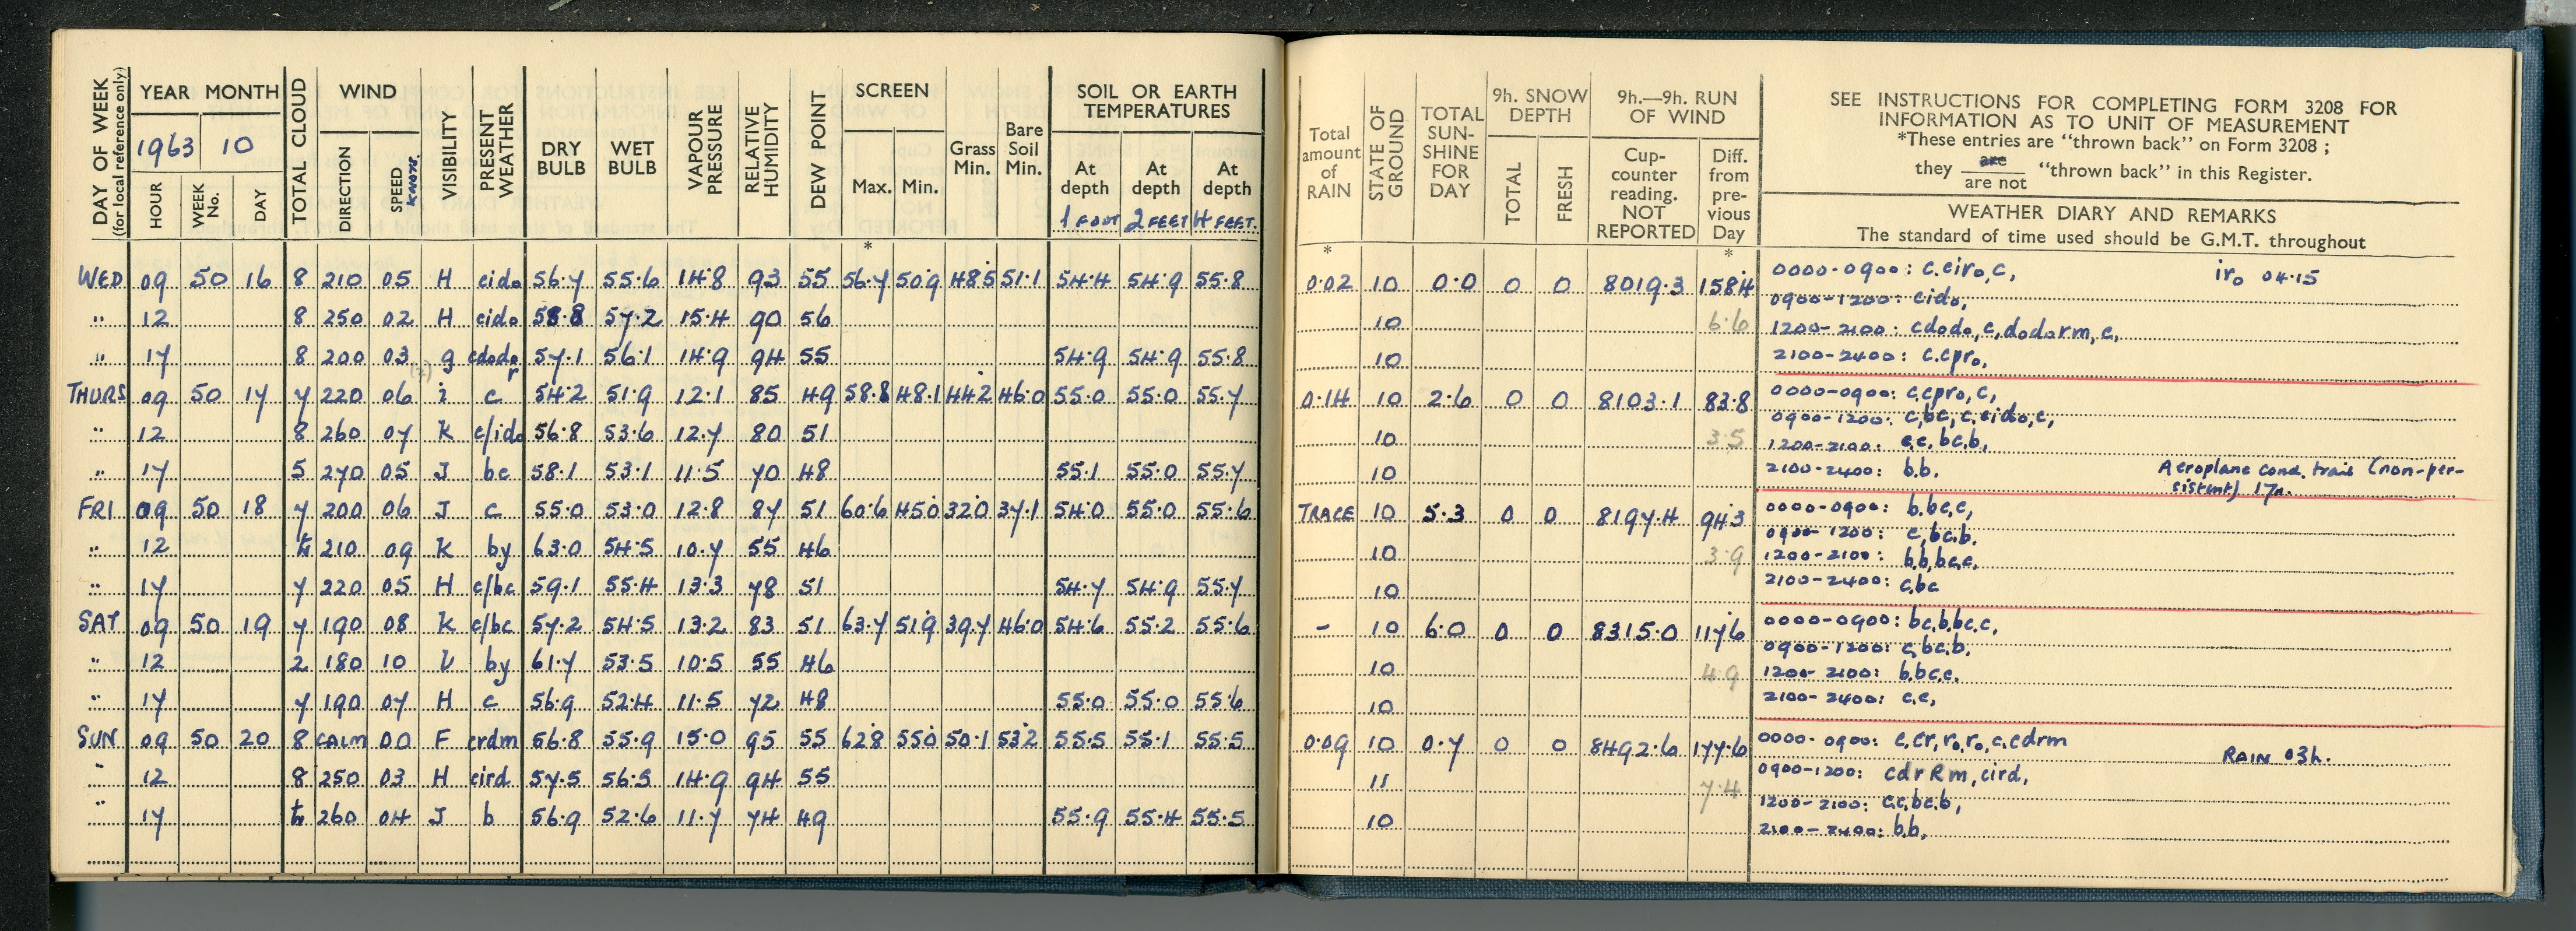 DAY OF WEEK
(for local reference only)
YEAR MONTH
1963 10
HOUR WEEK No. DAY
TOTAL CLOUD
WIND
DIRECTION SPEED KNOTS.
VISIBILITY
PRESENT WEATHER
DRY BULB
WET BULB
VAPOUR PRESSURE
RELATIVE HUMIDITY
DEW POINT
SCREEN
Max. Min.
Grass Min.
Bare Soil Min.
SOIL OR EARTH TEMPERATURES
At depth At depth At depth
1 FOOT 2 FEET 4 FEET.
*
WED 09 50 16 8 210 05 H cido 56.7 55.6 14.8 93 55 56.7 50.9 48.5 51.1 54.4 54.9 55.8
" 12 8 250 02 H cido 58.8 57.2 15.4 90 56
" 17 8 200 03 g cdodo r 57.1 56.1 14.9 94 55 54.9 54.9 55.8
THURS 09 50 17 7 220 06 i c 54.2 51.9 12.1 85 49 58.8 48.1 44.2 46.0 55.0 55.0 55.7
" 12 8 260 07 K c/ido 56.8 53.6 12.7 80 51
" 17 5 270 05 J bc 58.1 53.1 11.5 70 48 55.1 55.0 55.7
FRI 09 50 18 7 200 06 J c 55.0 53.0 12.8 87 51 60.6 45.0 32.0 37.1 54.0 55.0 55.6
" 12 210 09 K by 63.0 54.5 10.7 55 46
" 17 7 220 05 H c/bc 59.1 55.4 13.3 78 51 54.7 54.9 55.7
SAT 09 50 19 7 190 08 K c/bc 57.2 54.5 13.2 83 51 63.7 51.9 39.7 46.0 54.6 55.2 55.6
" 12 2 180 10 by 61.7 53.5 10.5 55 46
" 17 7 190 07 H c 56.9 52.4 11.5 72 48 55.0 55.0 55.6
SUN 09 50 20 8 CALM 00 F crdm 56.8 55.9 15.0 95 55 62.8 55.0 50.1 53.2 55.5 55.1 55.5
" 12 8 250 03 H cird 57.5 56.5 14.9 94 55
" 17 260 04 J b 56.9 52.6 11.7 74 49 55.9 55.4 55.5
Total amount of RAIN
STATE OF GROUND
TOTAL SUN-SHINE FOR DAY
9h. SNOW DEPTH
TOTAL FRESH
9h.—9h. RUN OF WIND
Cup-counter reading. NOT REPORTED
Diff. from pre-vious Day
SEE INSTRUCTIONS FOR COMPLETING FORM 3208 FOR
INFORMATION AS TO UNIT OF MEASUREMENT
*These entries are "thrown back" on Form 3208 ;
they are / are not "thrown back" in this Register.
WEATHER DIARY AND REMARKS
The standard of time used should be G.M.T. throughout
* *
0.02 10 0.0 0 0 8019.3 158.4 0000-0900: c.ciro,c, iro 04.15
0900-1200: cido,
10 6.6 1200-2100: cdodo,c,dodorm,c,
10 2100-2400: c.cpro,
0.14 10 2.6 0 0 8103.1 83.8 0000-0900: c,cpro,c,
0900-1200: c,bc,c,cido,c,
10 3.5 1200-2100: c,c,bc,b,
10 2100-2400: b.b. Aeroplane cond. trail (non-per-
sistent) 17a.
TRACE 10 5.3 0 0 8197.4 94.3 0000-0900: b,bc,c,
0900-1200: c,bc,b.
10 3.9 1200-2100: b,b,bc,c.
10 2100-2400: c,bc
- 10 6.0 0 0 8315.0 117.6 0000-0900: bc,b,bc,c,
0900-1200: c,bc,b.
10 4.9 1200-2100: b,bc,c.
10 2100-2400: c,c,
0.09 10 0.7 0 0 8492.6 177.6 0000-0900: c,cr,ro,ro,c,cdrm RAIN 03h.
11 7.4 0900-1200: cdrRm,cird,
1200-2100: c,c,bc,b,
10 2100-2400: b,b,